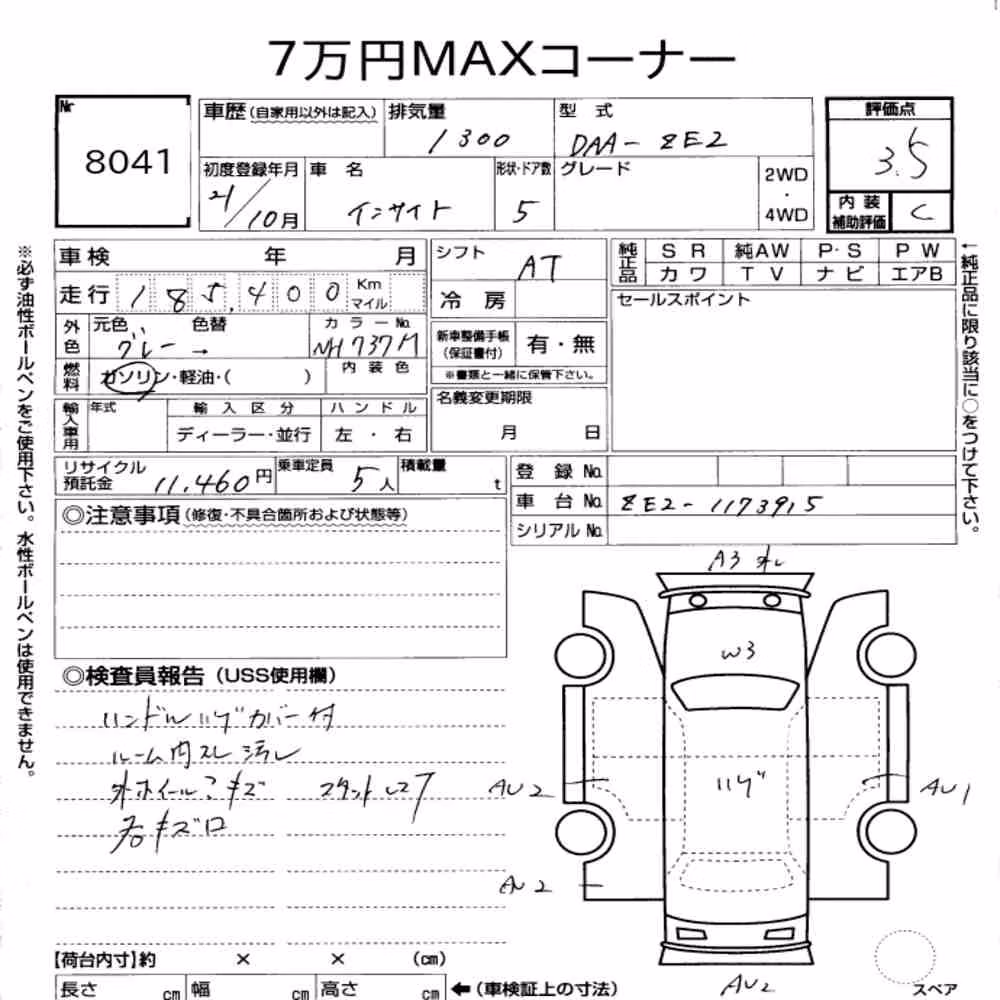 7万円MAXコーナー
Nr
8041
車歴(自家用以外は記入)
排気量
1300
型 式
DAA-ZE2
評価点
3.5
初度登録年月
21/10月
車 名
インサイト
形状・ドア数
5
グレード
2WD
・
4WD
内 装
補助評価
C
※必ず油性ボールペンをご使用下さい。水性ボールペンは使用できません。
車検 年 月
走行 185,400 Km
マイル
外色
元色
グレー
色替
→
カラーNo.
NH737M
燃料
ガソリン・軽油・( )
内 装 色
輸入車用
年式
輸 入 区 分
ディーラー・並行
ハ ン ド ル
左 ・ 右
シフト
AT
冷 房
新車整備手帳
(保証書付)
有・無
※書類と一緒に保管下さい。
名義変更期限
月 日
純正品
S R 純AW P・S P W
カワ T V ナビ エアB
セールスポイント
←純正品に限り該当に○をつけて下さい。
リサイクル
預託金
11,460円
乗車定員
5人
積載量
t
登 録 No.
車 台 No.
ZE2-1173915
シリアル No.
◎注意事項(修復・不具合箇所および状態等)
◎検査員報告(USS使用欄)
ハンドルハゲカバー付
ルーム内スレ汚レ
外ホイールコキズ スタットレス7
右キズロ
A3
W3
ハゲ
AU2
AU1
AU2
AU2
【荷台内寸】約 × × (cm)
長さ cm 幅 cm 高さ cm
←(車検証上の寸法)
スペア